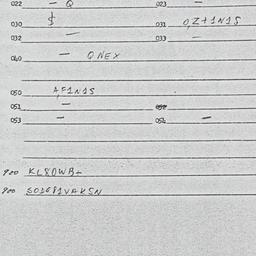 022 — Q 023 —
030 $ 031 0,Z+1N1S
032 — 033 —
040 — QNEX
050 AF1N1S
051 — 052
053 — 054 —
900 KL8OWB+
900 SO1681VAKSN